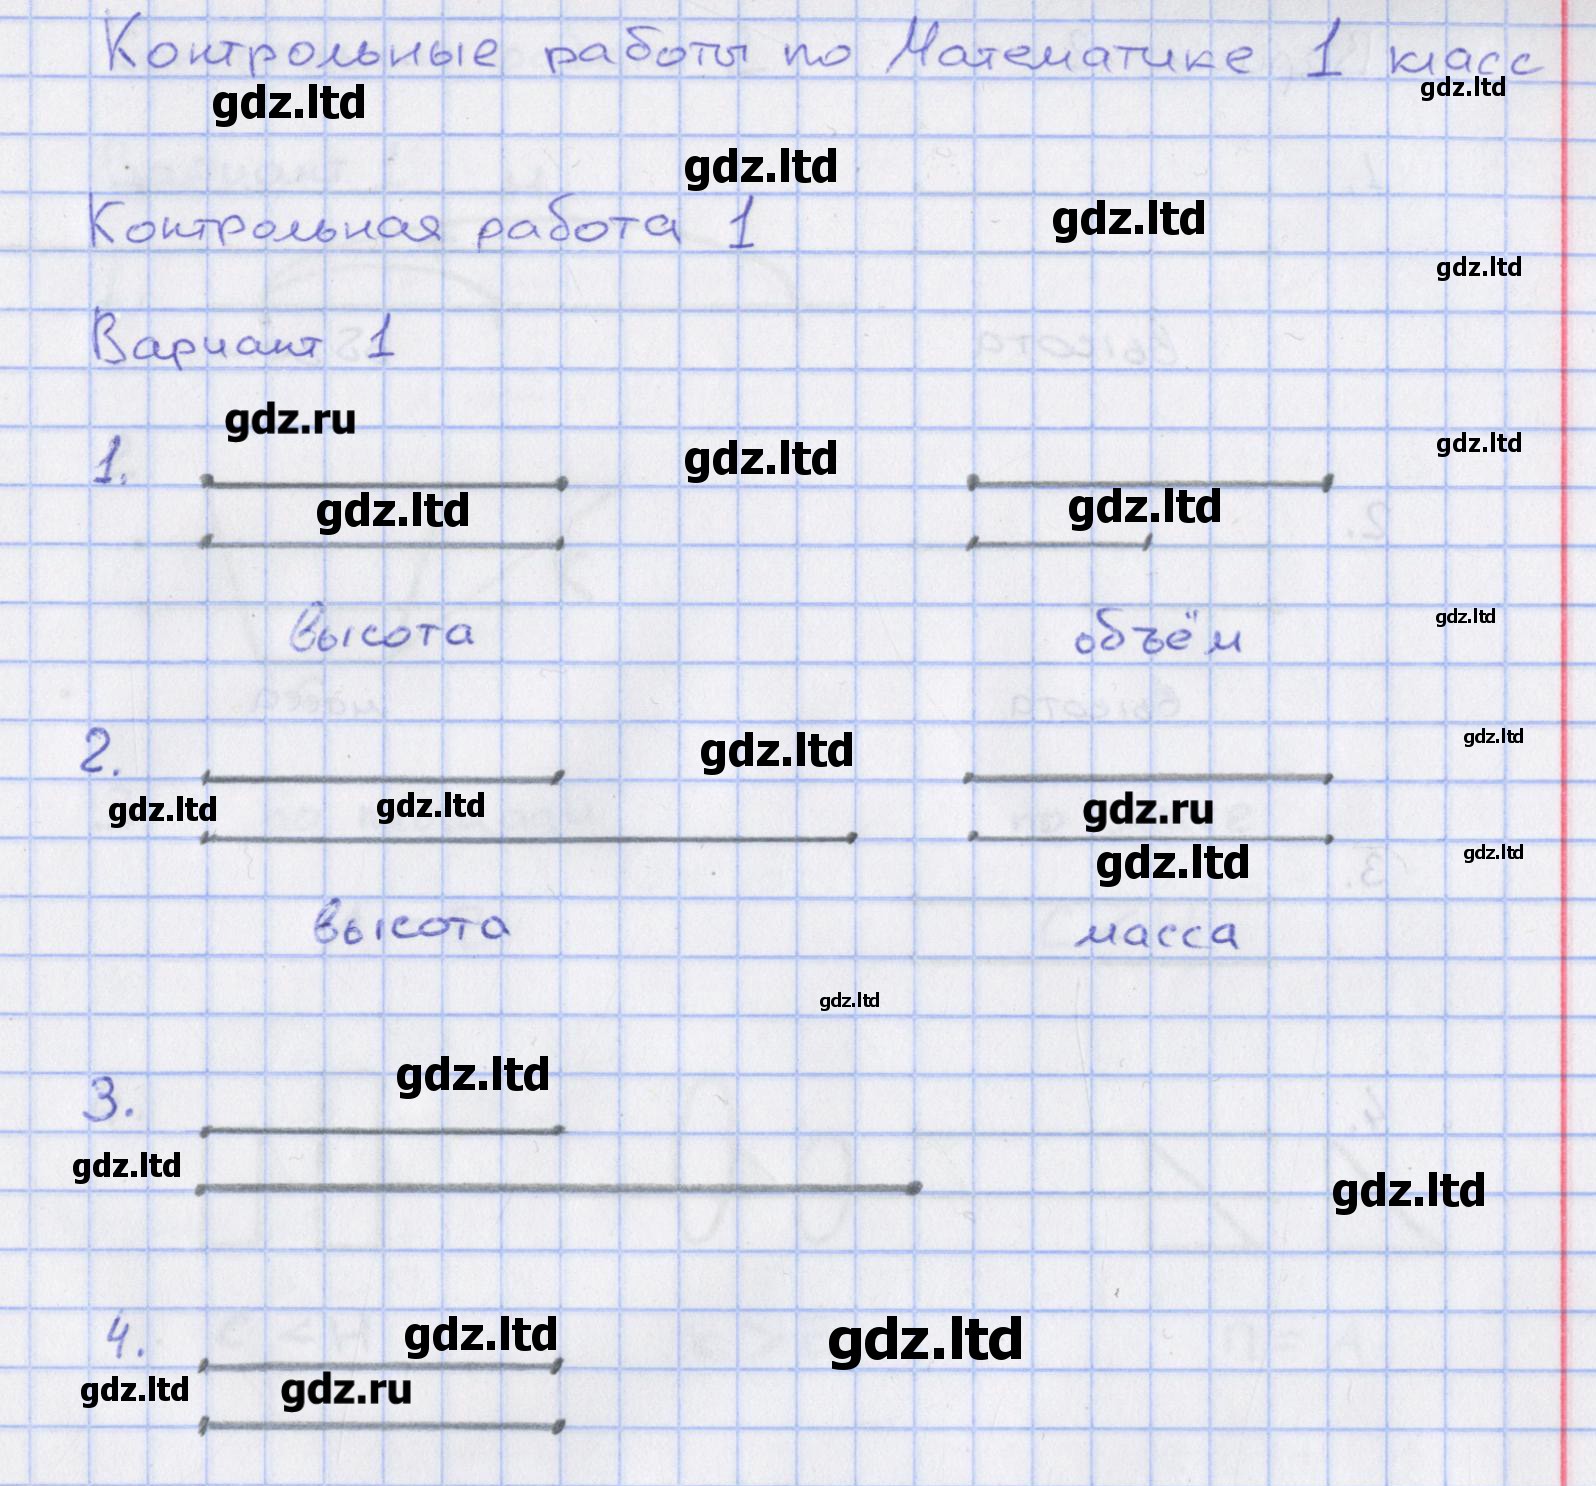 Контрольные работы по Математике 1 класс
gdz.ltd gdz.ltd
gdz.ltd
Контрольная работа 1 gdz.ltd
gdz.ltd
Вариант 1
gdz.ru
1. gdz.ltd gdz.ltd
gdz.ltd gdz.ltd
высота объём gdz.ltd
2. gdz.ltd gdz.ltd
gdz.ltd gdz.ltd gdz.ru
gdz.ltd gdz.ltd
высота масса
gdz.ltd
3. gdz.ltd
gdz.ltd gdz.ltd
4. gdz.ltd gdz.ltd
gdz.ltd gdz.ru